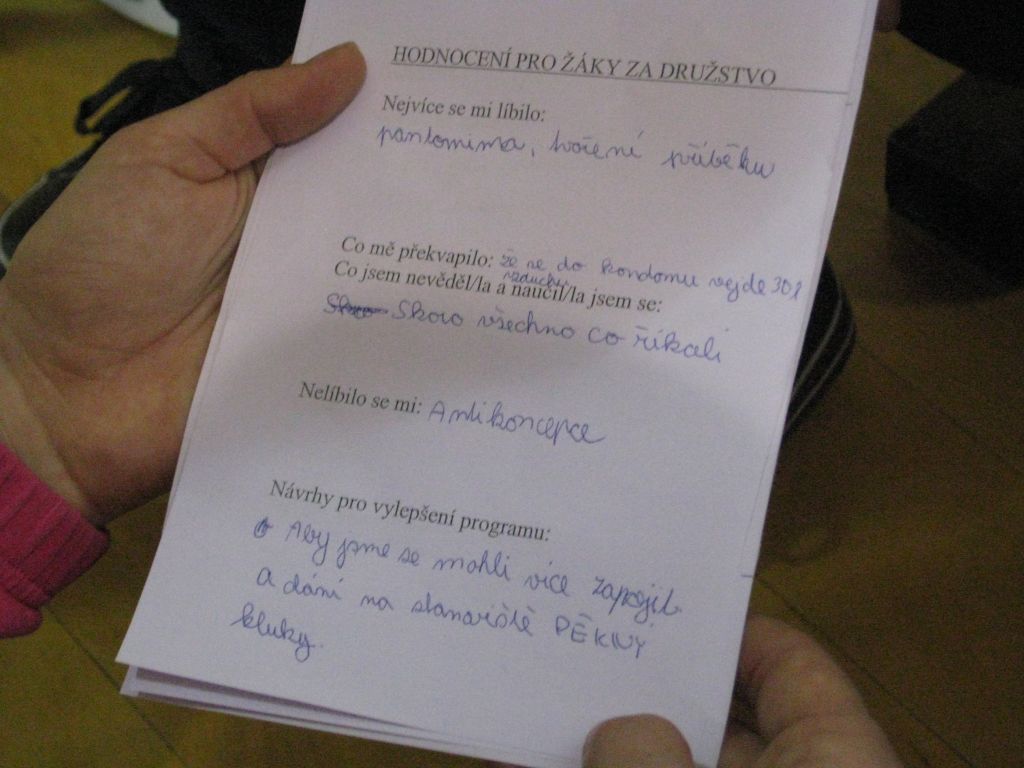 HODNOCENÍ PRO ŽÁKY ZA DRUŽSTVO
Nejvíce se mi líbilo:
pantomima, tvoření příběhu
Co mě překvapilo: že se do kondomu vejde 30 l
vzduchu
Co jsem nevěděl/la a naučil/la jsem se:
Skoro Skoro všechno co říkali
Nelíbilo se mi: Antikoncepce
Návrhy pro vylepšení programu:
Aby jsme se mohli více zapojit
a dání na stanoviště PĚKNÝ
kluky.